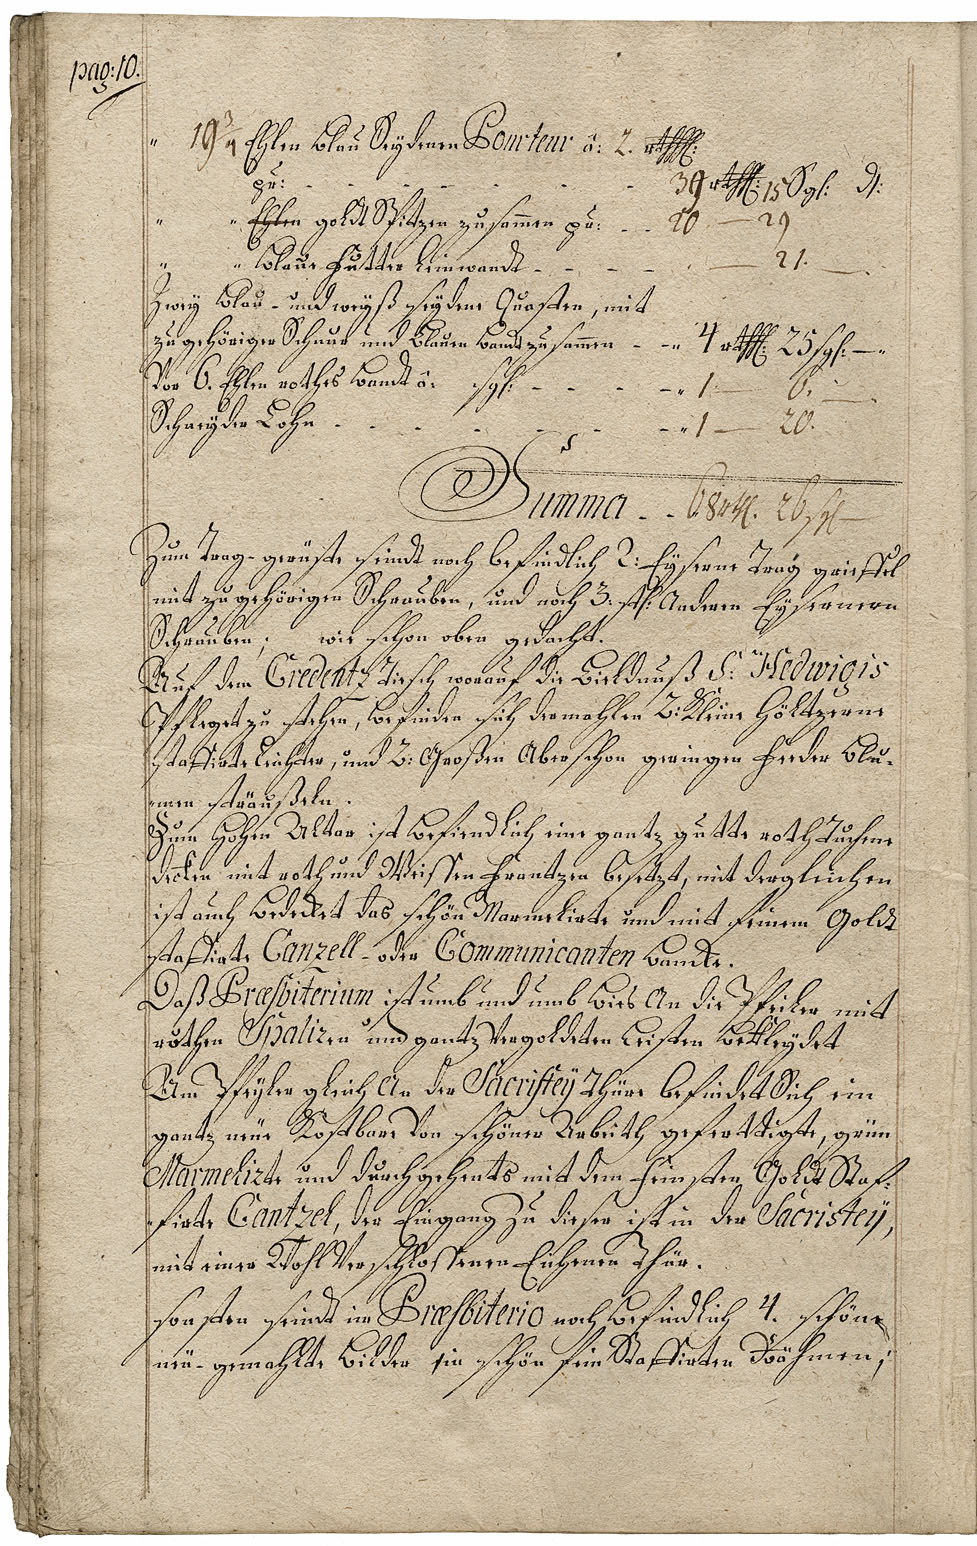 pag: 10.
" 19 3/4 Ehlen blau Seydenen Pourteur â: 2. rthlr:
pr: - - - - - - - 39 rthlr: 15 Sgl: d:
" " Ehlen goldt Spitzen zusamen pr: - - 20 — 29
" " blaue futter Leinwandt - - - - . — 21. —.
Zwey blau- und weyß seydene Quasten, mit
zugehöriger Schnur und blauen bandt zusamen - - " 4 rthlr: 25 sgl: — "
Vor 6. Ehlen rothes bandt â: sgl: - - - - - " 1 — 6. —.
Schneyder Lohn - - - - - - - " 1 — 20.
Summa - - 68 rthl. 26 sgl —
Zum Trag-gerüste seindt noch befindlich 2: Eyserne Trag
mit zugehörigen Schrauben, und noch 3: stk: Anderen Eysernern
Schrauben; wie schon oben gedacht.
Auf dem Credentz Tiesch worauf die bieldnuß S: Hedwigis
Pfleget zu stehen, befinden sich dermahlen 2: Kleine Höltzerne
staffirte leichter, und 2: Großen Aber schon geringen feeder blu-
men sträußeln.
Zum Hohen Altar ist befiendlich eine gantz gutte roth Tuchene
decken mit roth und Weissen frantzen besetzt, mit dergleichen
ist auch bedecket das schön Marmelirte und mit feinem Goldt
staffirte Canzell- oder Communicanten bancke.
Daß Præsbiterium ist umb und umb bies An die Pfeiler mit
rothen Spalizen und gantz Vergoldeten Leisten bekleydet
Am Pfeyler gleich An der Sacristey Thüre befindet Sich ein
gantz neüe Kostbare Von schöner Arbeith gefertigte, grün
Marmelizte und durchgehents mit dem feinsten Goldt Staf-
firte Cantzel, der Eingang Zu dieser ist in der Sacristey,
mit einer Wohl Verschlossenen Eichenen Thür.
sonsten seindt in Præsbiterio noch befindlich 4. schöne
neü-gemahlte bilder in schön fein Staffirten Rähmen;